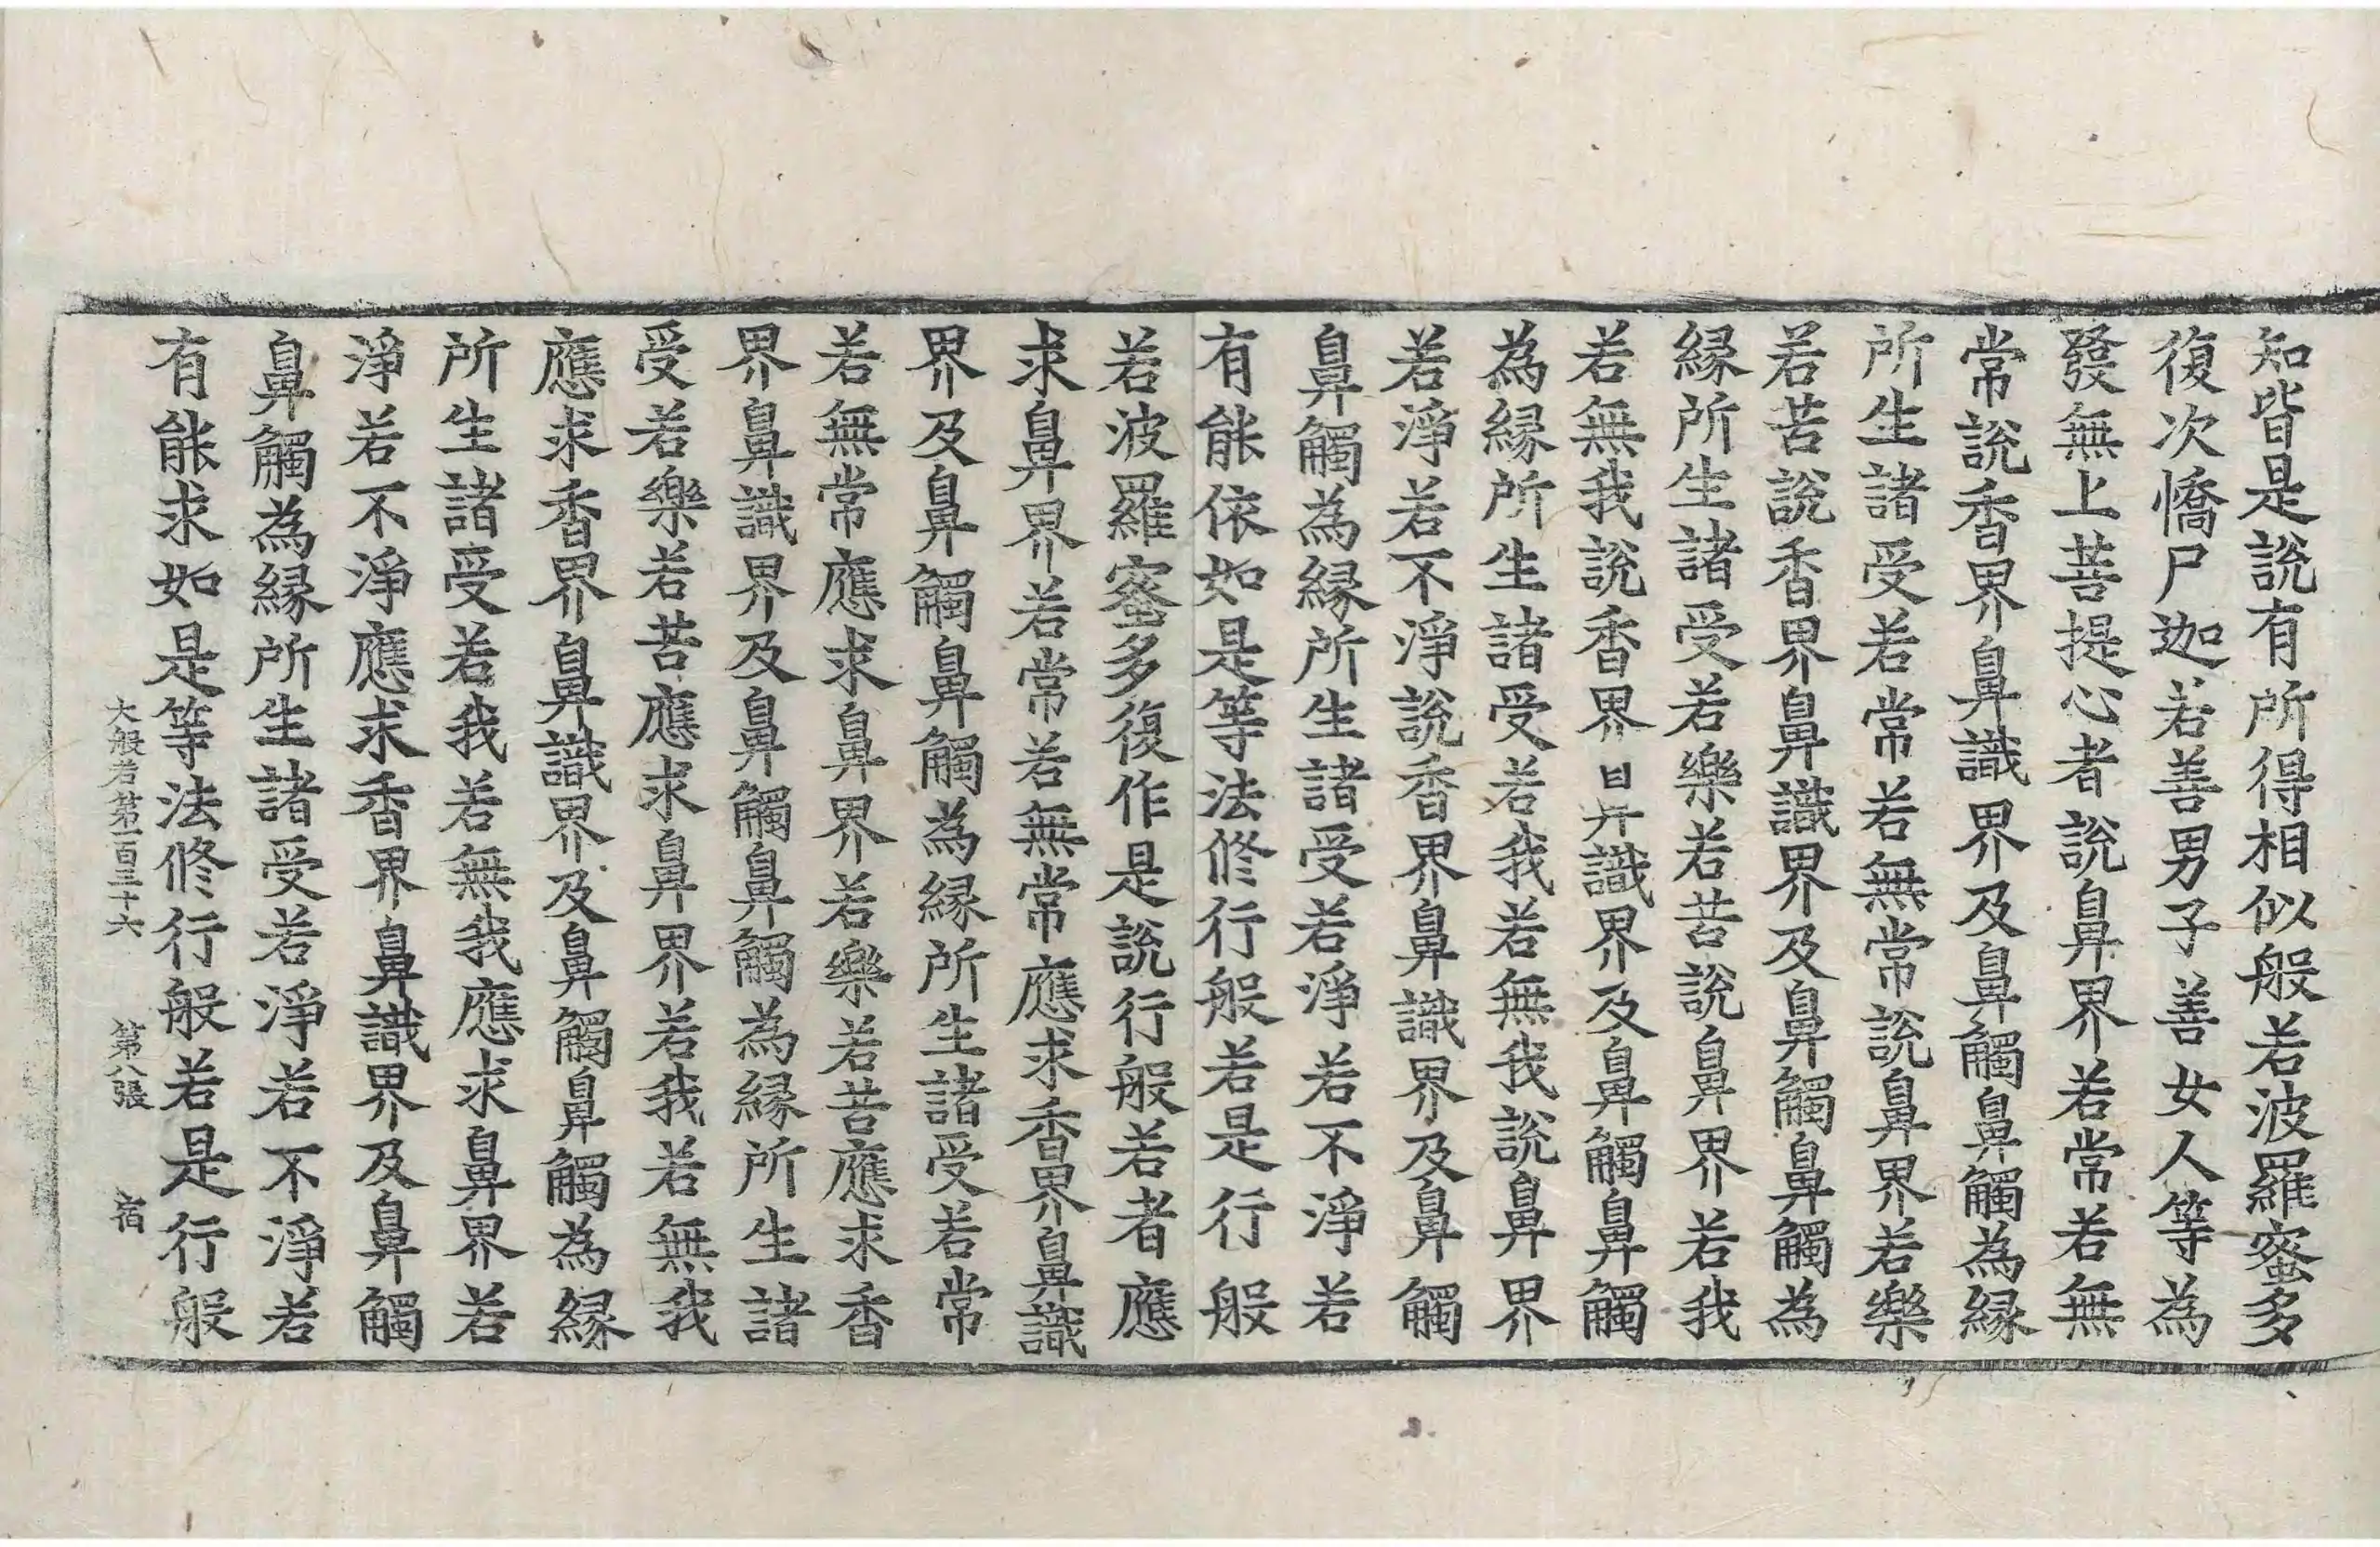 知皆是說有所得相似般若波羅蜜多
復次憍尸迦若善男子善女人等為
發無上菩提心者說鼻界若常若無
常說香界鼻識界及鼻觸鼻觸為縁
所生諸受若常若無常說鼻界若樂
若苦說香界鼻識界及鼻觸鼻觸為
縁所生諸受若樂若苦說鼻界若我
若無我說香界鼻識界及鼻觸鼻觸
為縁所生諸受若我若無我說鼻界
若淨若不淨說香界鼻識界及鼻觸
鼻觸為縁所生諸受若淨若不淨若
有能依如是等法修行般若是行般
若波羅蜜多復作是說行般若者應
求鼻界若常若無常應求香界鼻識
界及鼻觸鼻觸為縁所生諸受若常
若無常應求鼻界若樂若苦應求香
界鼻識界及鼻觸鼻觸為縁所生諸
受若樂若苦應求鼻界若我若無我
應求香界鼻識界及鼻觸鼻觸為縁
所生諸受若我若無我應求鼻界若
淨若不淨應求香界鼻識界及鼻觸
鼻觸為縁所生諸受若淨若不淨若
有能求如是等法修行般若是行般
大般若第一百三十六 第八張 宿